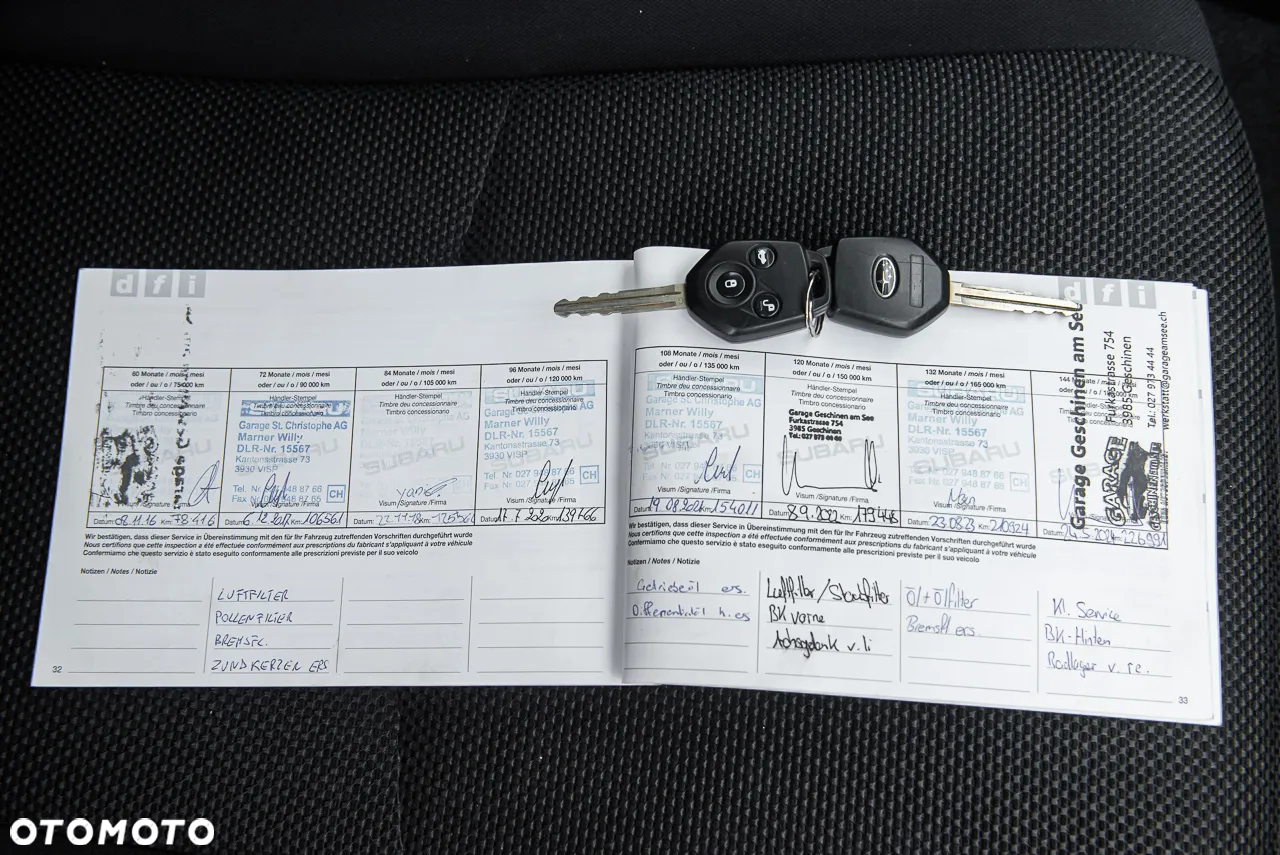 dfi
60 Monate / mois / mesi
oder / ou / o / 75000 km
Händler-Stempel
Timbre deu concessionnaire
Timbro concessionario
Visum /Signature /Firma
Datum: .11.16 Km: 78416
72 Monate / mois / mesi
oder / ou / o / 90 000 km
Händler-Stempel
Timbre deu concessionnaire
Timbro concessionario
Garage St. Christophe AG
Marner Willy
DLR-Nr. 15567
Kantonsstrasse 73
3930 VISP
Tel. Nr. 027 948 87 66
Fax Nr. 027 948 87 65
CH
Visum /Signature /Firma
Datum: 6.12.2017 Km: 106561
84 Monate / mois / mesi
oder / ou / o / 105 000 km
Händler-Stempel
Timbre deu concessionnaire
Timbro concessionario
SUBARU
Visum /Signature /Firma
Datum: 22.11.18 Km:
96 Monate / mois / mesi
oder / ou / o / 120 000 km
Händler-Stempel
Timbre deu concessionnaire
Timbro concessionario
Garage St. Christophe AG
Marner Willy
DLR-Nr. 15567
Kantonsstrasse 73
3930 VISP
Tel. Nr 027 948 87 66
CH
Visum /Signature /Firma
Datum: 17.7.2020 Km: 139766
Wir bestätigen, dass dieser Service in Übereinstimmung mit den für Ihr Fahrzeug zutreffenden Vorschriften durchgeführt wurde
Nous certifions que cette inspection a été effectuée conformément aux prescriptions du fabricant s'appliquant à votre véhicule
Confermiamo che questo servizio è stato eseguito conformamente alle prescrizioni previste per il suo veicolo
Notizen / Notes / Notizie
LUFTFILTER
POLLENFILTER
BREMSFL.
ZÜNDKERZEN ERS
32
dfi
108 Monate / mois / mesi
oder / ou / o / 135 000 km
Händler-Stempel
Timbre deu concessionnaire
Timbro concessionario
Garage St. Christophe AG
Marner Willy
DLR-Nr. 15567
Kantonsstrasse 73
CH
Visum /Signature /Firma
Datum: 19.08.2021 Km: 154011
120 Monate / mois / mesi
oder / ou / o / 150 000 km
Händler-Stempel
Timbre deu concessionnaire
Timbro concessionario
Garage Geschinen am See
Furkastrasse 754
3985 Geschinen
Tel.: 027 973 44 44
Visum /Signature /Firma
Datum: 8.9.2022 Km: 179448
132 Monate / mois / mesi
oder / ou / o / 165 000 km
Händler-Stempel
Timbre deu concessionnaire
Timbro concessionario
Marner Willy
DLR-Nr. 15567
Kantonsstrasse 73
CH
Visum /Signature /Firma
Datum: 23.08.23 Km: 210324
144
Datum: 24.5.2024 226991
Garage Geschinen am See
Furkastrasse 754
3985 Geschinen
Tel.: 027 973 44 44
werkstatt@garageamsee.ch
GARAGE
Wir bestätigen, dass dieser Service in Übereinstimmung mit den für Ihr Fahrzeug zutreffenden Vorschriften durchgeführt wurde
Nous certifions que cette inspection a été effectuée conformément aux prescriptions du fabricant s'appliquant à votre véhicule
Confermiamo che questo servizio è stato eseguito conformamente alle prescrizioni previste per il suo veicolo
Notizen / Notes / Notizie
Getriebeöl ers.
Differentialöl h. ers
Luftfilter/Staubfilter
BK vorne
Achsgelenk v. li
Öl + Ölfilter
Bremsfl ers.
Kl. Service
BK-Hinten
Radlager v. re.
33
OTOMOTO